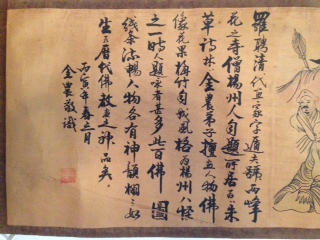 羅聘清代画家字遯夫號两峰
花之寺僧揚州人自題所居曰朱
草詩林金農弟子擅画人物佛
像花果梅竹自成風格為揚州八怪
之一時人題咏甚多此百佛圖
线条流暢人物各有神韻栩栩如
生乃歷代佛教画之珎品矣
丙寅年春三月
金農敬識